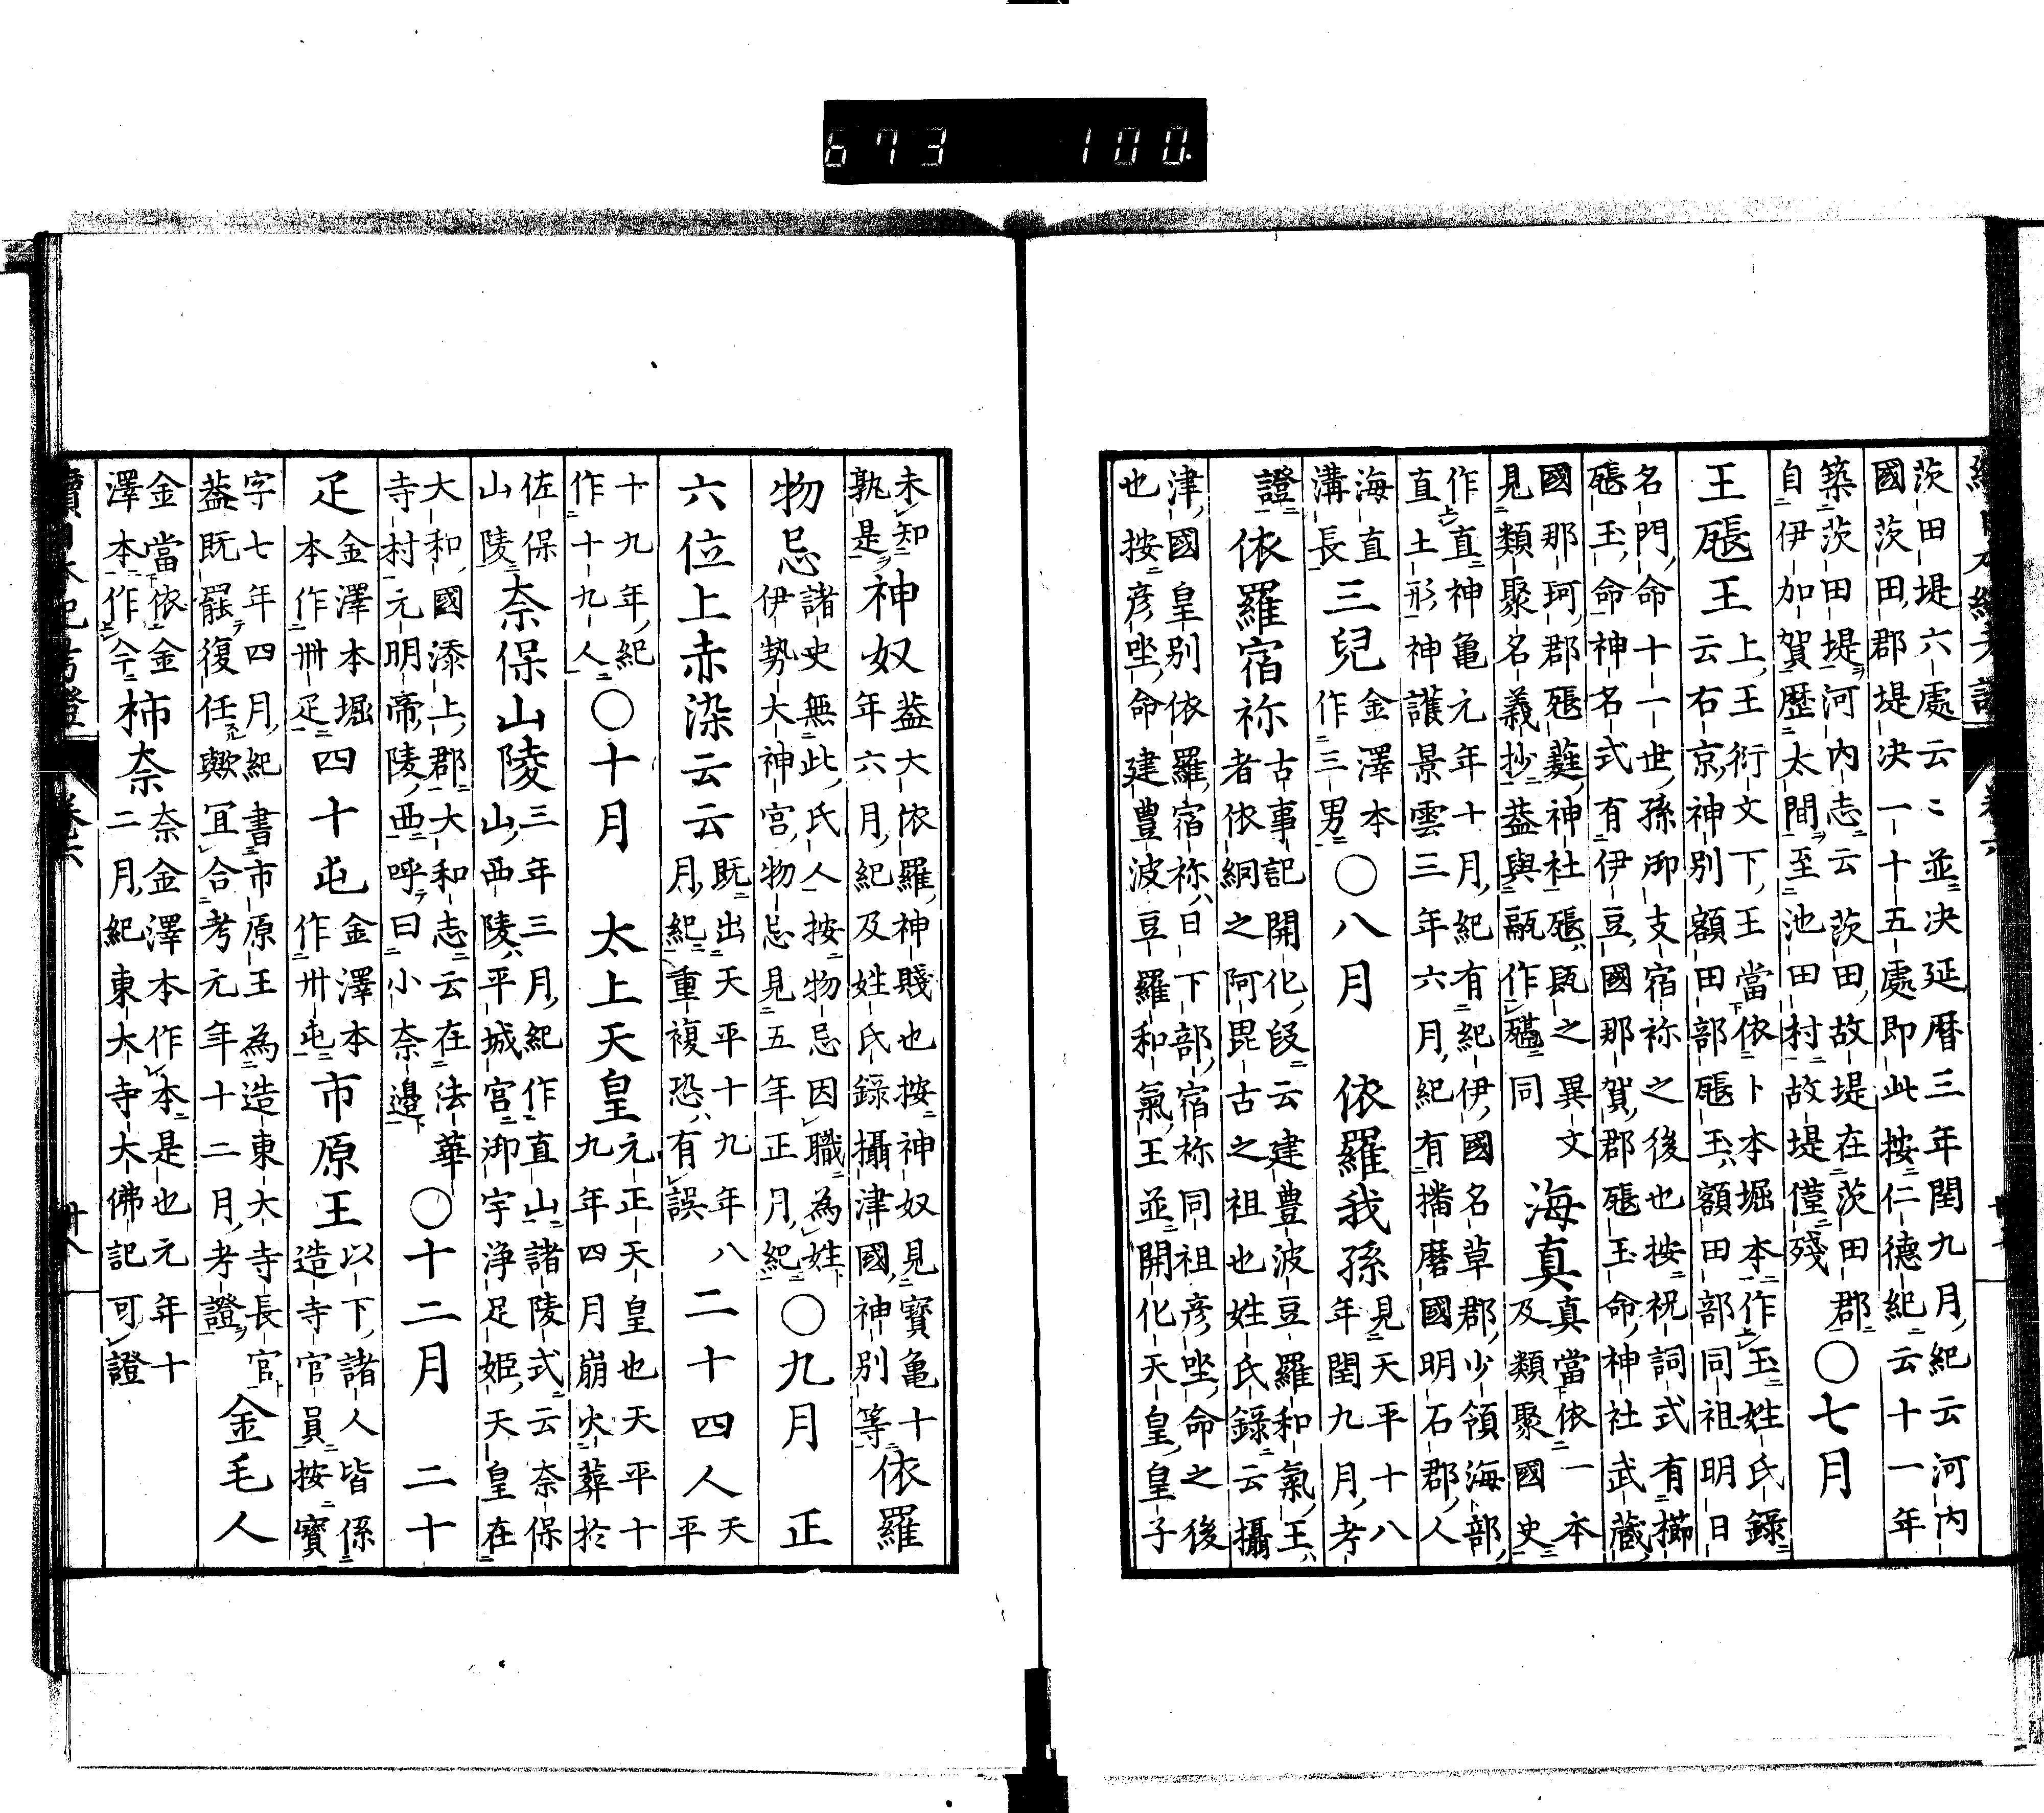 673 100.
茨田堤六處云〻並决延暦三年閏九月紀云河内
國茨田郡堤决一十五處即此按仁德紀云十一年
築茨田堤河内志云茨田故堤在茨田郡
自伊加賀歴太間至池田村故堤僅殘
〇七月
王瓺王
上王衍文下王當依卜本堀本作玉姓氏錄
云右京神別額田部瓺玉額田部同祖明日
名門命十一世孫御支宿祢之後也按祝詞式有櫛
瓺玉命神名式有伊豆國那賀郡瓺玉命神社武蔵
國那珂郡瓺神社瓺瓱之異文
見類聚名義抄葢與甂作同
海真
真當依一本
及類聚國史
作直神亀元年十月紀有紀伊國名草郡少領海部
直土形神護景雲三年六月紀有播磨國明石郡人
海直
溝長
三兒
金澤本
作三男
〇八月 依羅我孫
見天平十八
年閏九月考
證
依羅宿祢
古事記開化段云建豊波豆羅和氣王
者依網之阿毘古之祖也姓氏錄云攝
津國皇別依羅宿祢日下部宿祢同祖彦坐命之後
也按彦坐命建豊波豆羅和氣王並開化天皇皇子
未知
孰是
神奴
葢大依羅神賤也按神奴見寶亀十
年六月紀及姓氏錄攝津國神別等
依羅
物忌
諸史無此氏人按物忌因職為姓
伊勢大神宮物忌見五年正月紀
〇九月 正
六位上赤染云云
既出天平十九年八
月紀重複恐有誤
二十四人
天
平
十九年紀
作十九人
〇十月 太上天皇
元正天皇也天平十
九年四月崩火葬於
佐保
山陵
奈保山陵
三年三月紀作直山諸陵式云奈保
山西陵平城宮御宇浄足姫天皇在
大和國添上郡大和志云在法華
寺村元明帝陵西呼曰小奈邉
〇十二月 二十
疋
金澤本堀
本作卌疋
四十屯
金澤本
作卅屯
市原王
以下諸人皆係
造寺官員按寶
字七年四月紀書市原王為造東大寺長官
葢既罷復任歟宜合考元年十二月考證
金毛人
金當依金
澤本作今
柿奈
奈金澤本作本是也元年十
二月紀東大寺大佛記可證
續日本紀考證 卷六 廿八